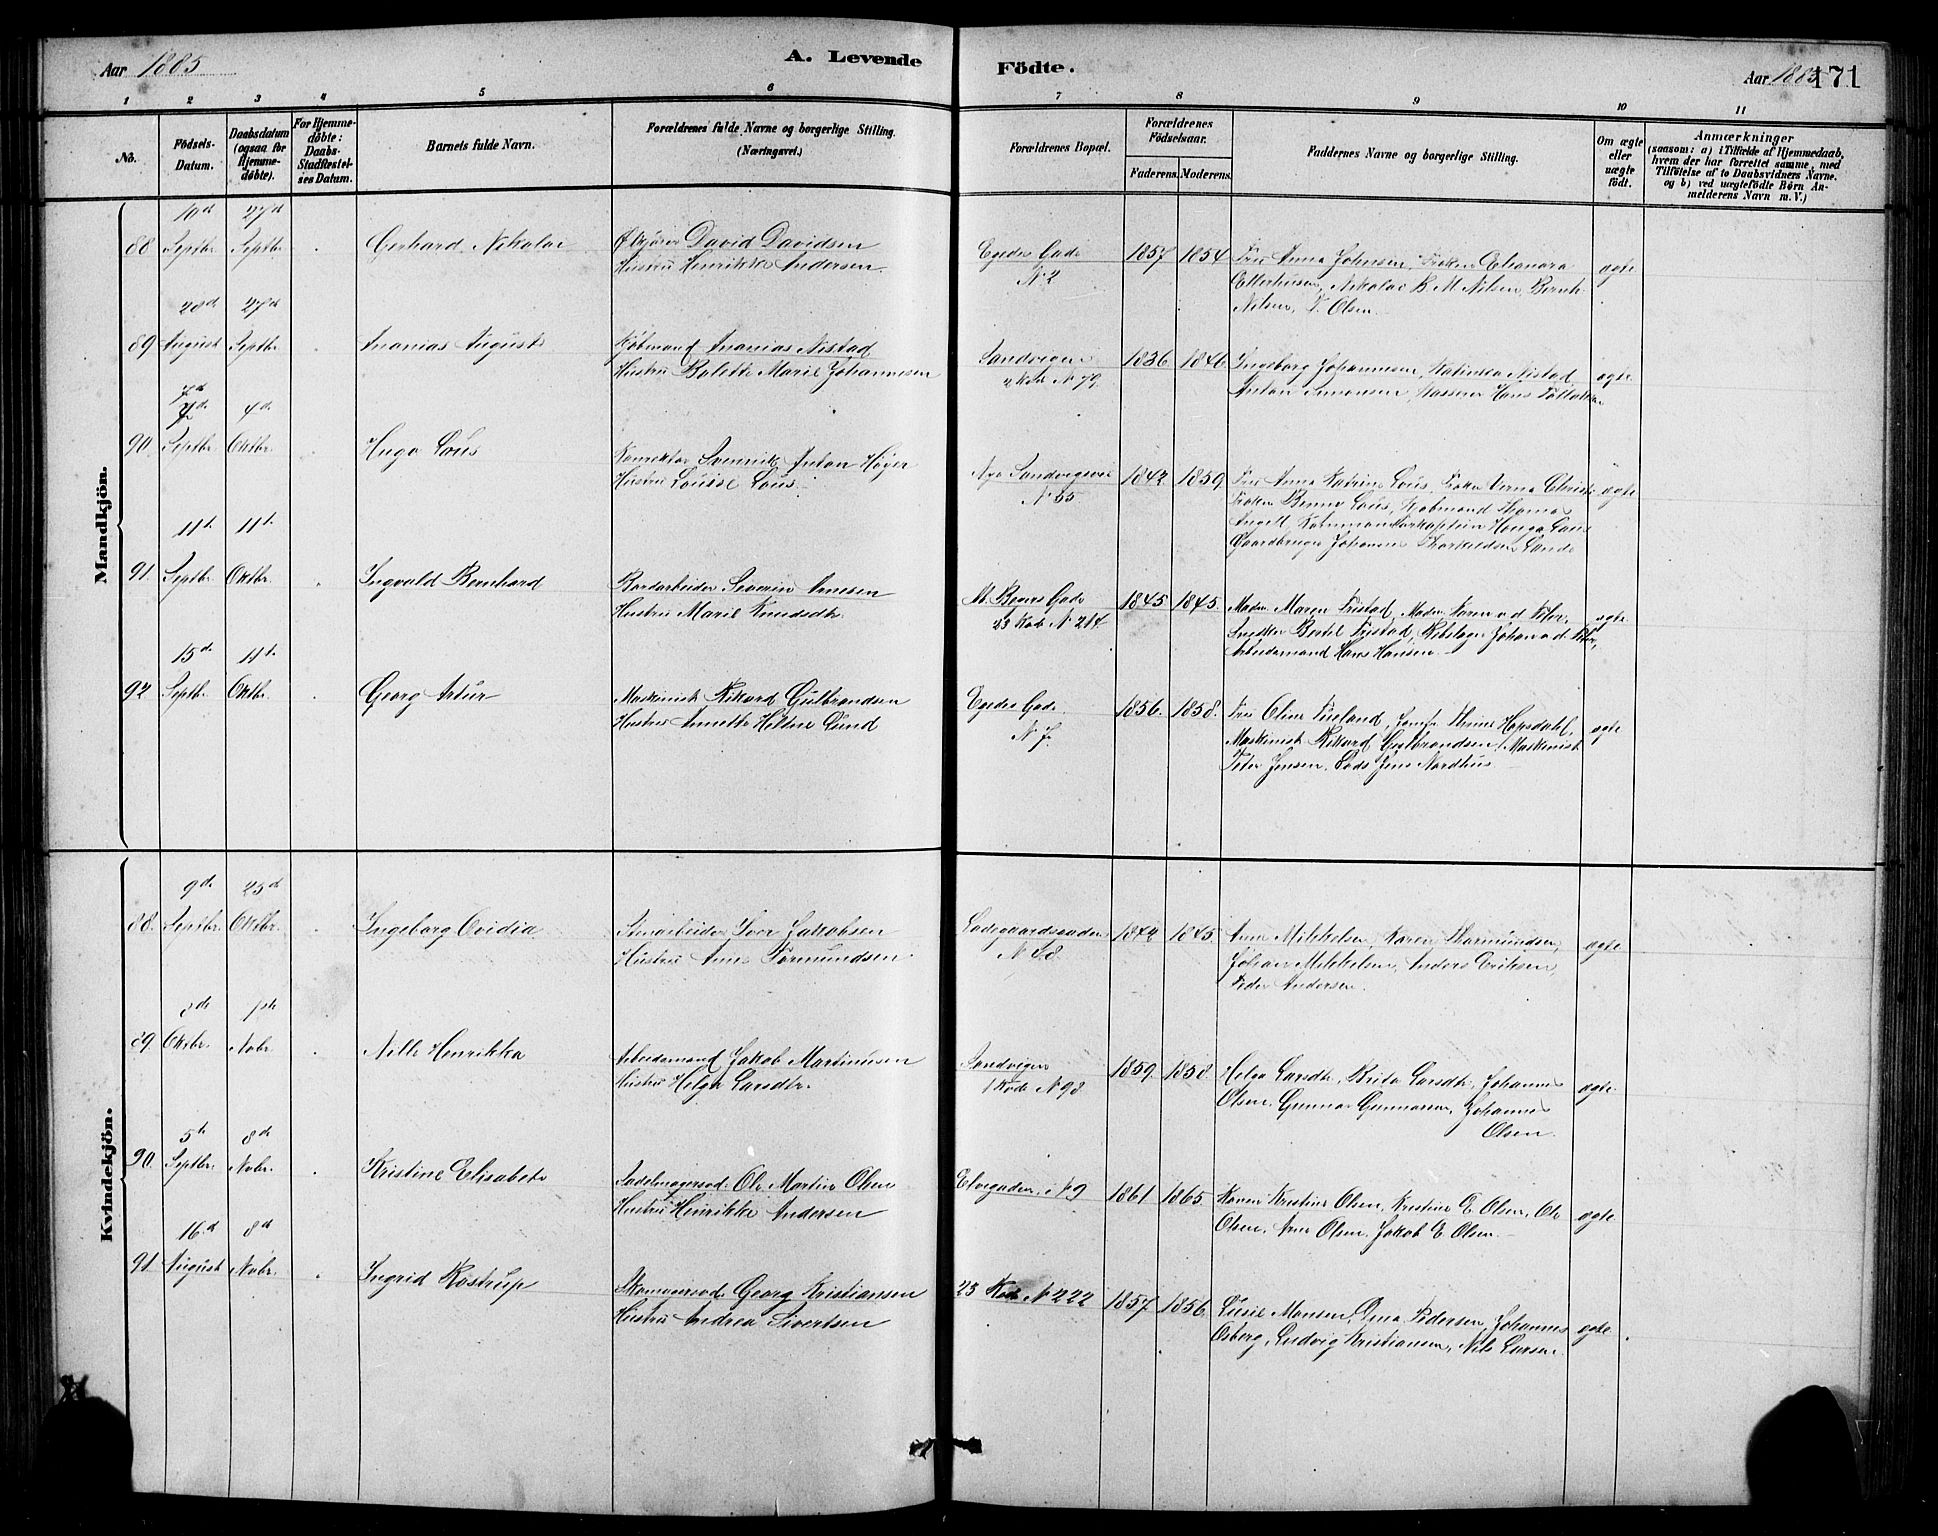 Aar 1885
A. Levende Födte.
Aar 1885 171
1 2 3 4 5 6 7 8 9 10 11
No.
Födsels-Datum.
Daabsdatum (ogsaa for Hjemme-döbte).
For Hjemme-döbte: Daabs-Stadfæstel-ses Datum.
Barnets fulde Navn.
Forældrenes fulde Navne og borgerlige Stilling. (Næringsvei.)
Forældrenes Bopæl.
Forældrenes Födselsaar.
Faderens. Moderens.
Faddernes Navne og borgerlige Stilling.
Om ægte eller uægte födt.
Anmærkninger
(saasom: a) i Tilfælde af Hjemmedaab, hvem der har forrettet samme, med Tilföielse af to Daabsvidners Navne, og b) ved uægtefödte Börn An-melderens Navn m. V.)
Mandkjön.
10d 27d
88 Septbr. Septbr. Gerhard Nikolai David Davidsen
Hustru Henrikke Andersen.
Egedes Gade N 2 1857 1854
Fru Anna Johnsen, Fröken Eleonora
Nikolai B. M. Nilsen, Bernh.
Nilsen, Olsen. ægte
28d 27d
89 August Septbr. Ananias August Kjøbmand Ananias Nistad
Hustru Bolette Marie Johannesen
Sandvigen 2 Rode N 79 1836 1846
Ingeborg Johannesen, Katinka Nistad
Anton Simonsen, Hans ægte
7d 4d
90. Septbr. Oktbr. Hugo Lous Konrektor Anton Høyer
Hustru Louise Lous.
Nye Sandvigsvei N 55 1842 1859
Fru Anna Katrine Lous, Frøken
Frøken Benny Lous, Kobmand Thomas
Angell, Lous
Gaardbruger Johannes Sande ægte
11te 11te
91. Septbr. Oktbr. Ingvald Bernhard Bordarbeider Severin Arnesen
Hustru Marie Knudsdtr.
M. Beyers Gade 23 Rode N 214 1845 1845.
Madm. Maren Fristad, Madm. Karen
Snedker Bertel Fristad, Johan
Arbeidsmand Hans Hansen ægte
15d 11te
92 Septbr. Oktbr. Georg Artur Maskinist Rikard Gulbrandsen
Hustru Annette Lund
Egedes Gade N 7 1856. 1858.
Fru Oline Hopsdahl,
Maskinist Rikard Gulbrandsen, Maskinist
Peder Jensen, Lods Jens Nordhus ægte
Kvindekjön.
9de 25d
88. Septbr. Oktbr. Ingeborg Ovidia Iver Jakobsen
Hustru Anne Tormundsen.
Ladegaardsgaden N 48 1842 1845
Anna Mikkelsen, Karen Tharmundsen,
Johan Mikkelsen, Anders Eriksen,
Peder Andersen. ægte
1te
89. Oktbr. Nobr. Nille Henrikka Arbeidsmand Jakob Martinusen
Hustru Helga Larsdtr.
Sandvigen 1 Rode N 98 1859. 1858.
Helga Larsdtr, Brita Larsdtr, Johannes
Olsen, Gunnar Gunnarsen, Johannes
Olsen. ægte
5te 8d
90. Septbr. Nobr. Kristine Elisabeth Sadelmagersvd. Ole Martin Olsen
Hustru Henrikke Andersen
Elvegaden N 9 1861 1865
Karen Kristine Olsen, Kristine E. Olsen, Ole
Olsen, Arne Olsen, Jakob E. Olsen. ægte
16.d 8d
91. August Nobr. Ingrid Rostrup Skomagersvd. Georg Kristiansen
Hustru Andrea Sivertsen
23 Rode N 222 1857 1856
Lusie Monsen, Pedersen, Johannes
Osberg, Ludvig Kristiansen, Nils Larsen. ægte.